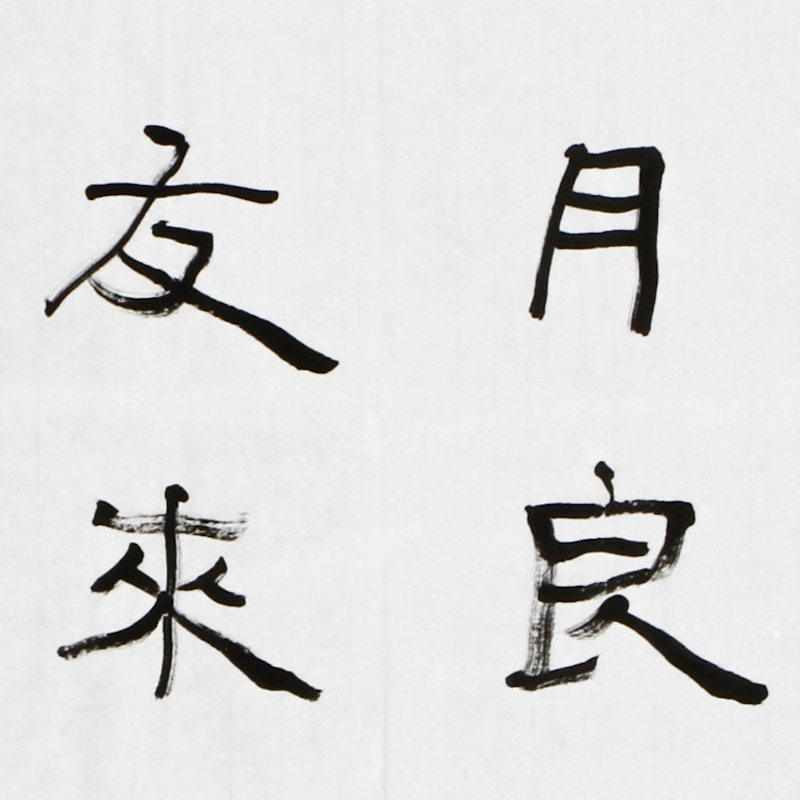 月良
友來